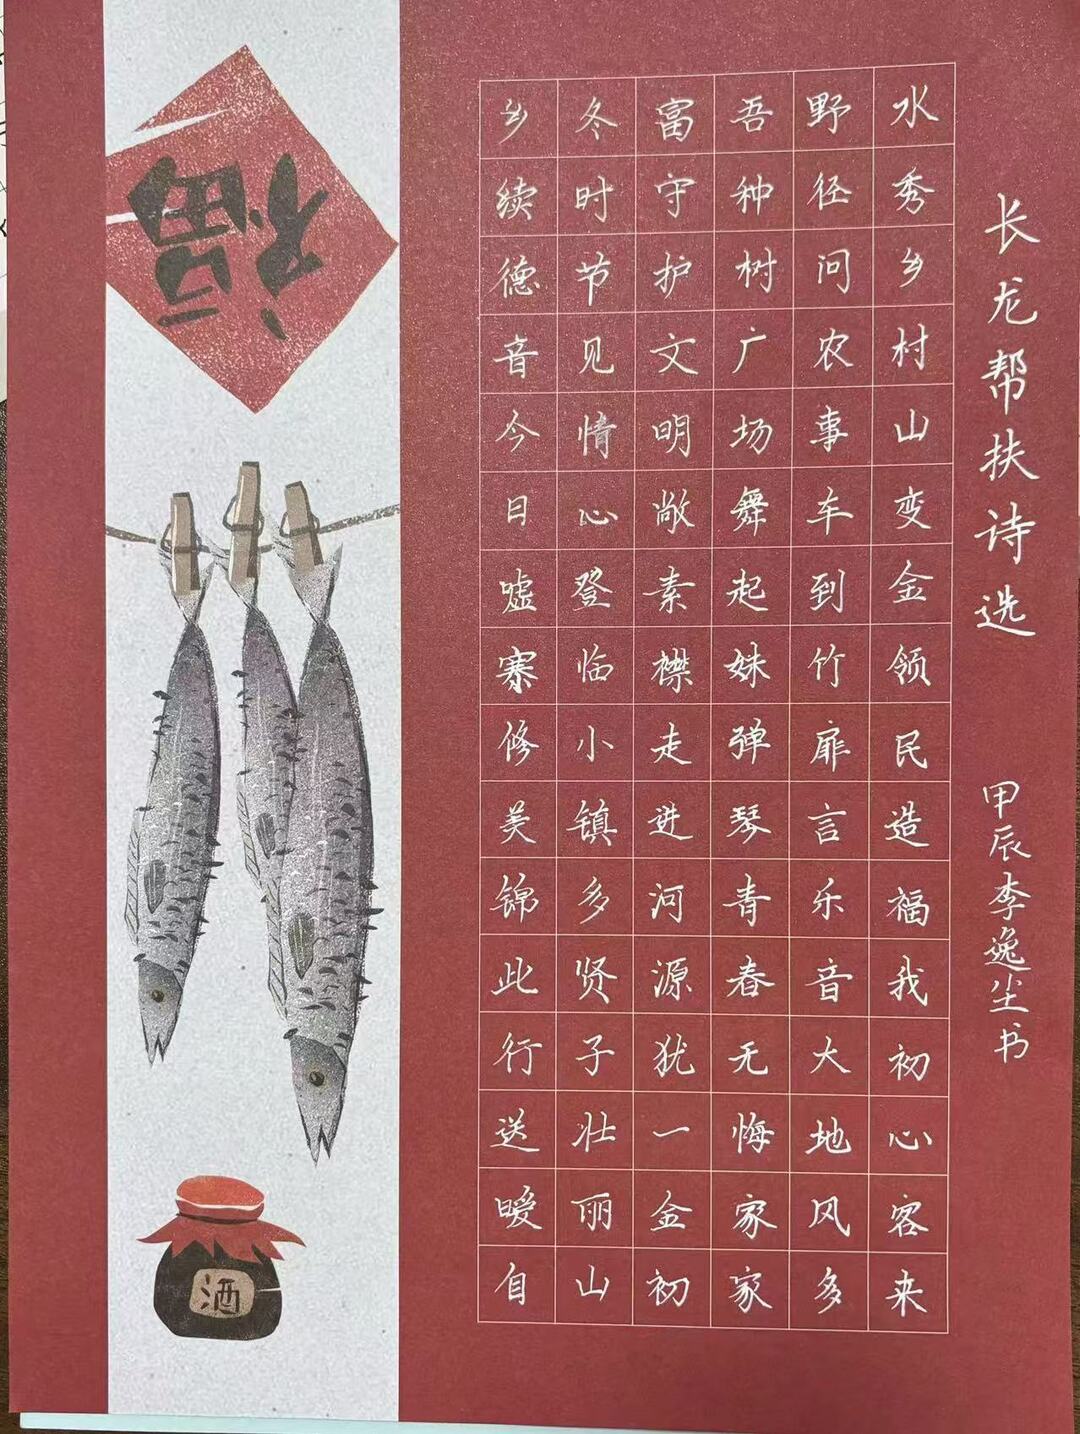 长龙帮扶诗选
甲辰李逸尘书
水秀乡村山变金领民造福我初心客来
野径问农事车到竹扉言乐音大地风多
吾种树广场舞起姝弹琴青春无悔家家
富守护文明敞素襟走进河源犹一金初
冬时节见情心登临小镇多贤子壮丽山
乡续德音今日嘘寒修美锦此行送暖自
福
酒